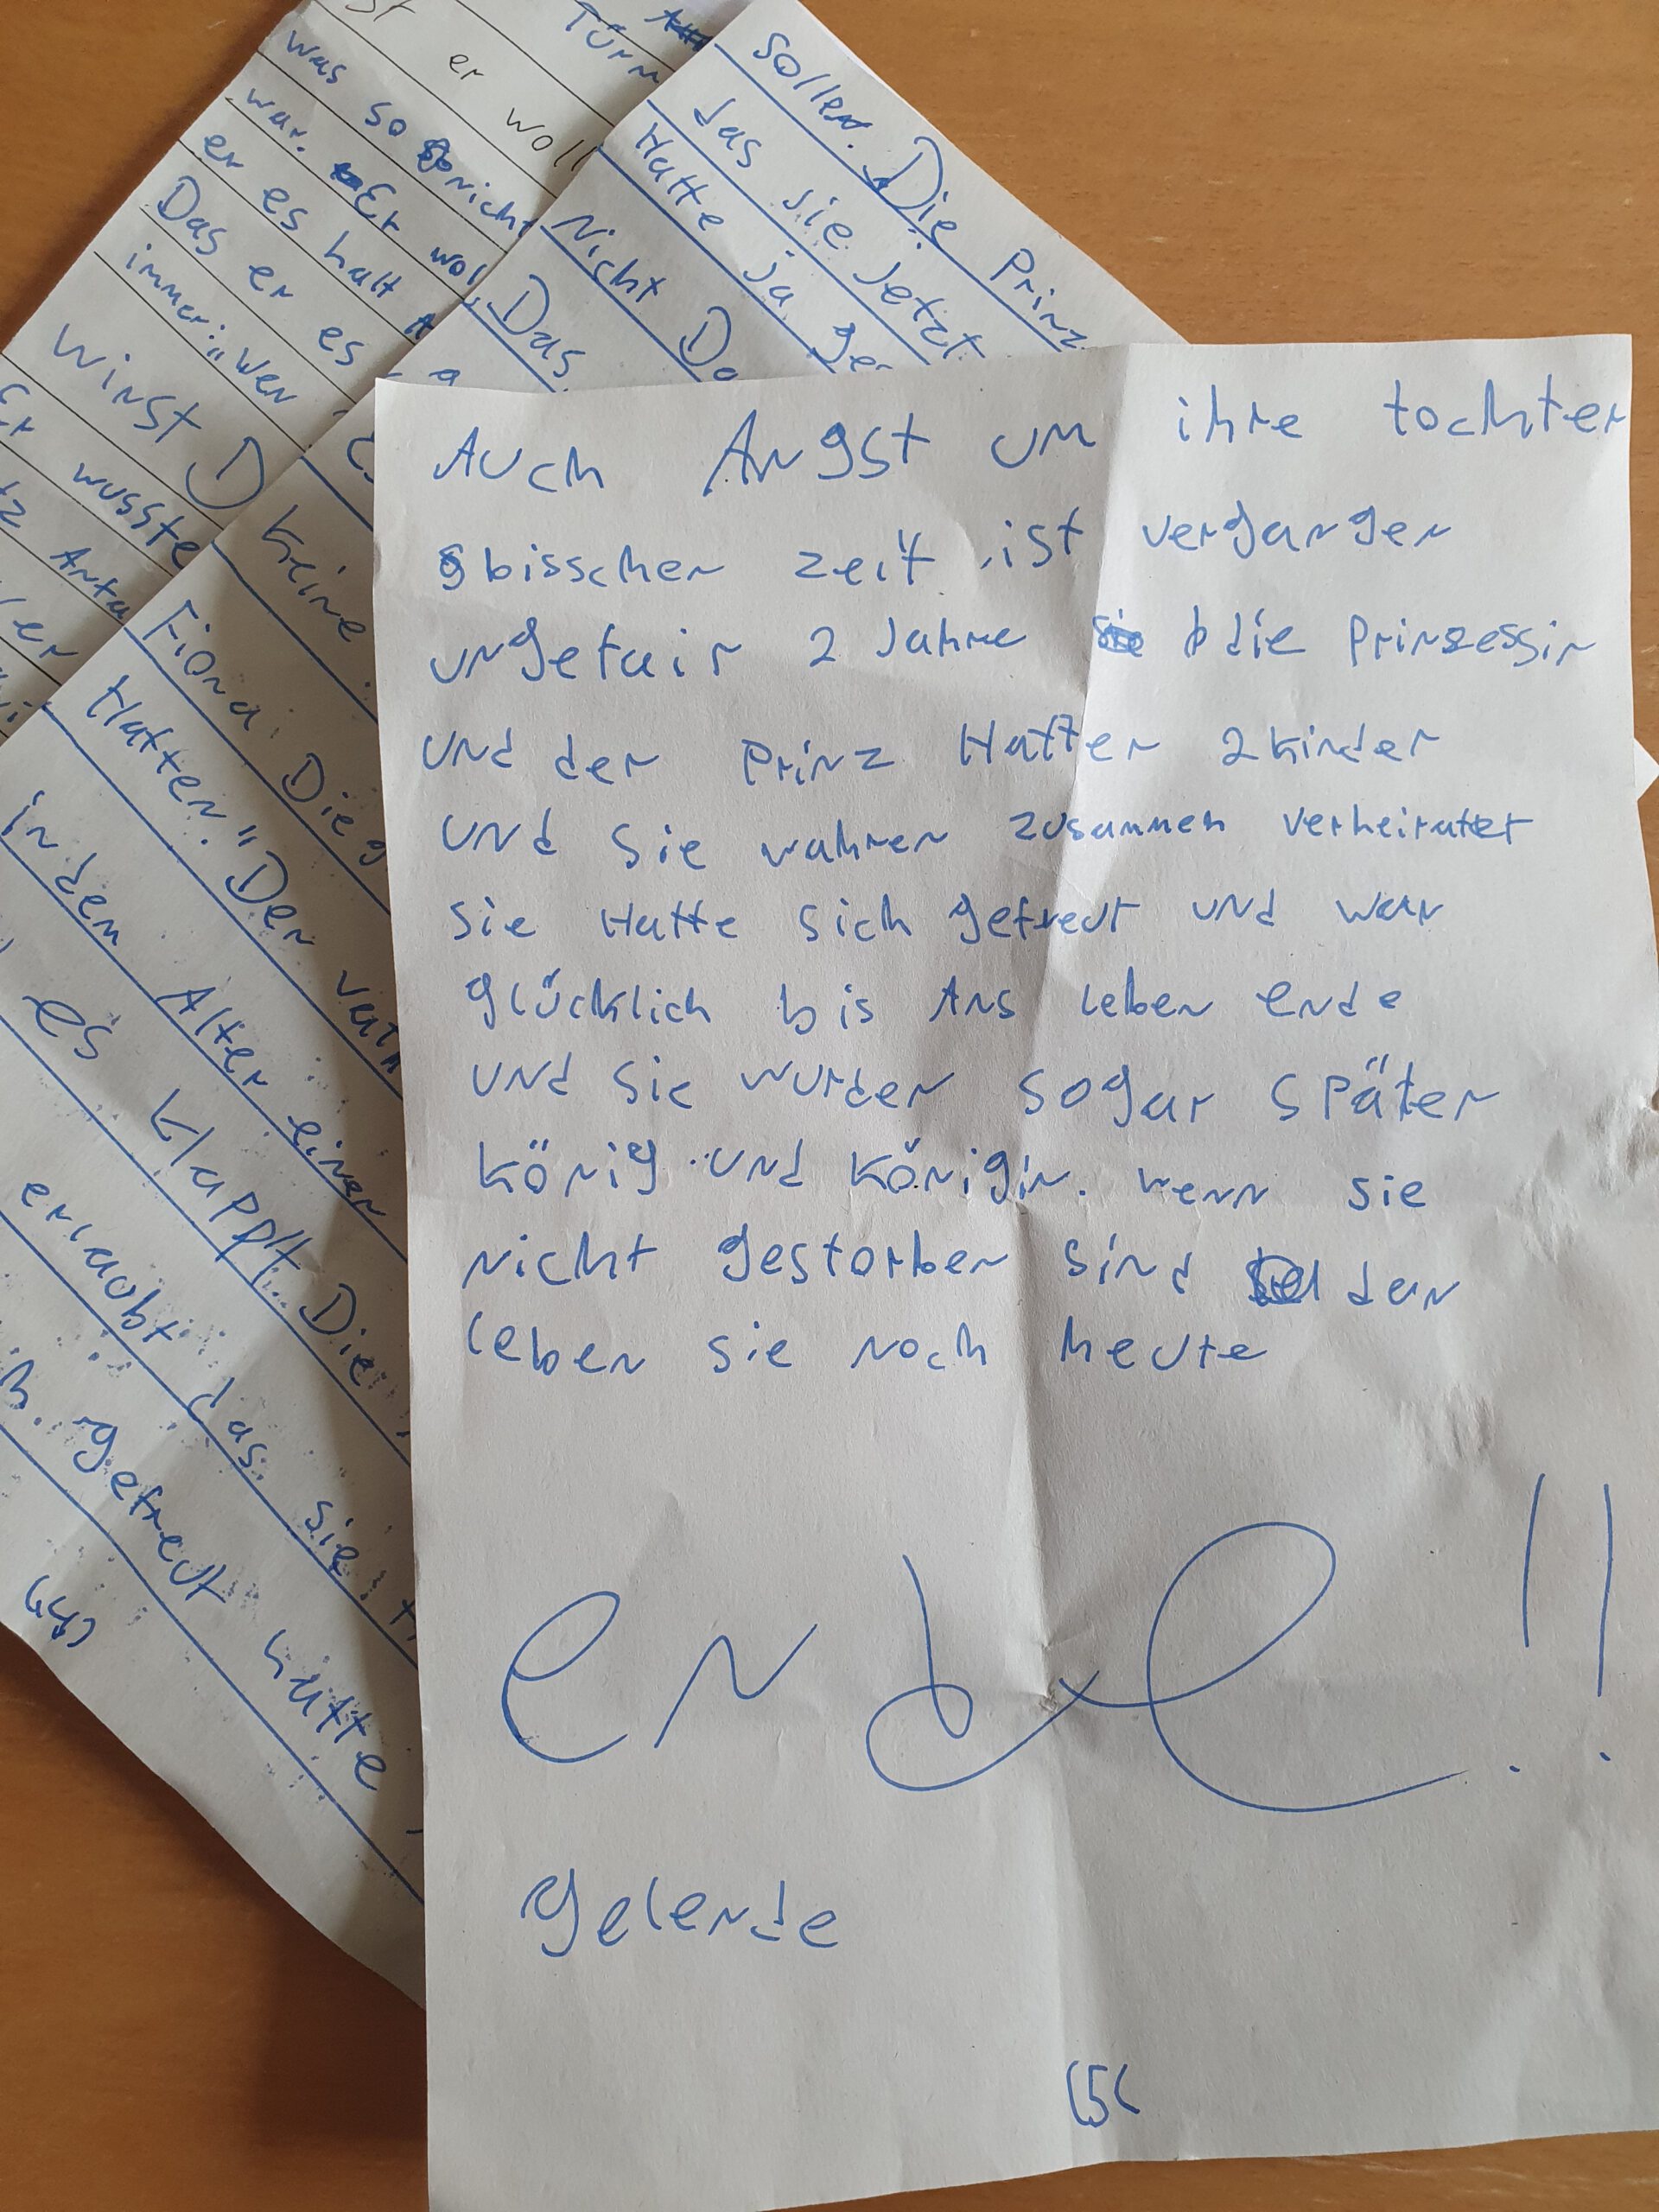 er woll
Turm
was so nicht
war. Er wol
er es halt
Das er es
immer: „Wer
winst D
wusste
Antw
soller. Die Prinz
das sie Jetzt
Hatte ja ger
Nicht Da
Das
Keine
Fiona: Die g
Hatten." Der vat
in dem Alter einen
es klapplt. Die
erlaubt das sie
gefreut hätte
(4)
Auch Angst um ihre tochter
bisschen zeit ist vergangen
ungefair 2 Jahre die Prinzessin
und der Prinz Hatten 2 kinder
und sie wahren zusammen verheiratet
sie Hatte sich gefreut und war
glücklich bis Ans leben ende
und sie wurden sogar später
könig und königin. wenn sie
nicht gestorben sind dan
leben sie noch heute
ende!!
gelende
(5(